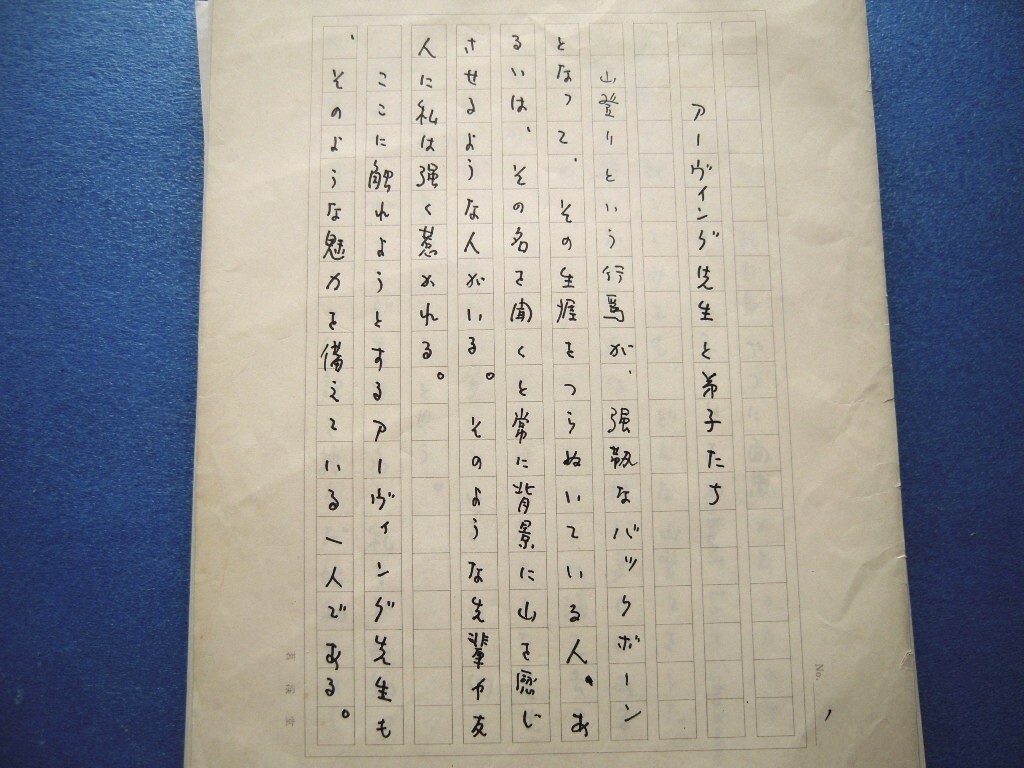 アーヴィング先生と弟子たち
山登りという行為が、強靱なバックボーン
となって、その生涯をつらぬいている人。あ
るいは、その名を聞くと常に背景に山を感じ
させるような人がいる。そのような先輩や友
人に私は強く惹かれる。
ここに触れようとするアーヴィング先生も
、そのような魅力を備えている一人である。
No.